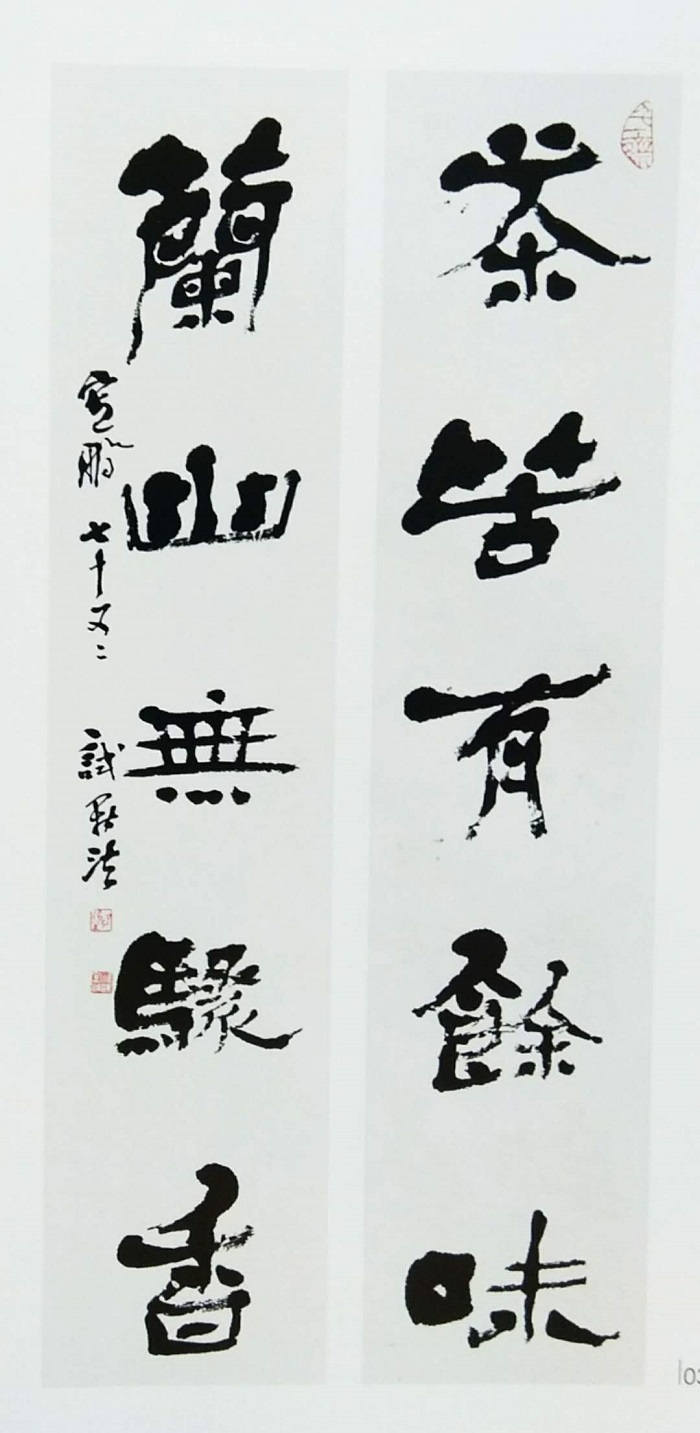 茶苦有餘味
蘭幽無驟香
寬鵬 七十又二 試墨法